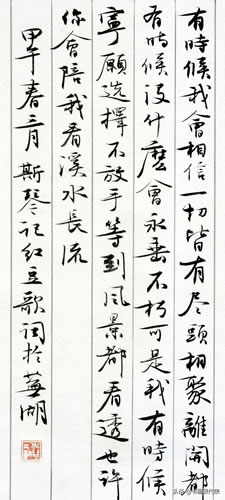 有時候我會相信一切皆有尽頭相聚離開都
有時候没什麽會永垂不朽可是我有時候
寧願选擇不放手等到风景都看透也許
你會陪我看溪水長流
甲午春三月斯琴记红豆歌词於蕪湖